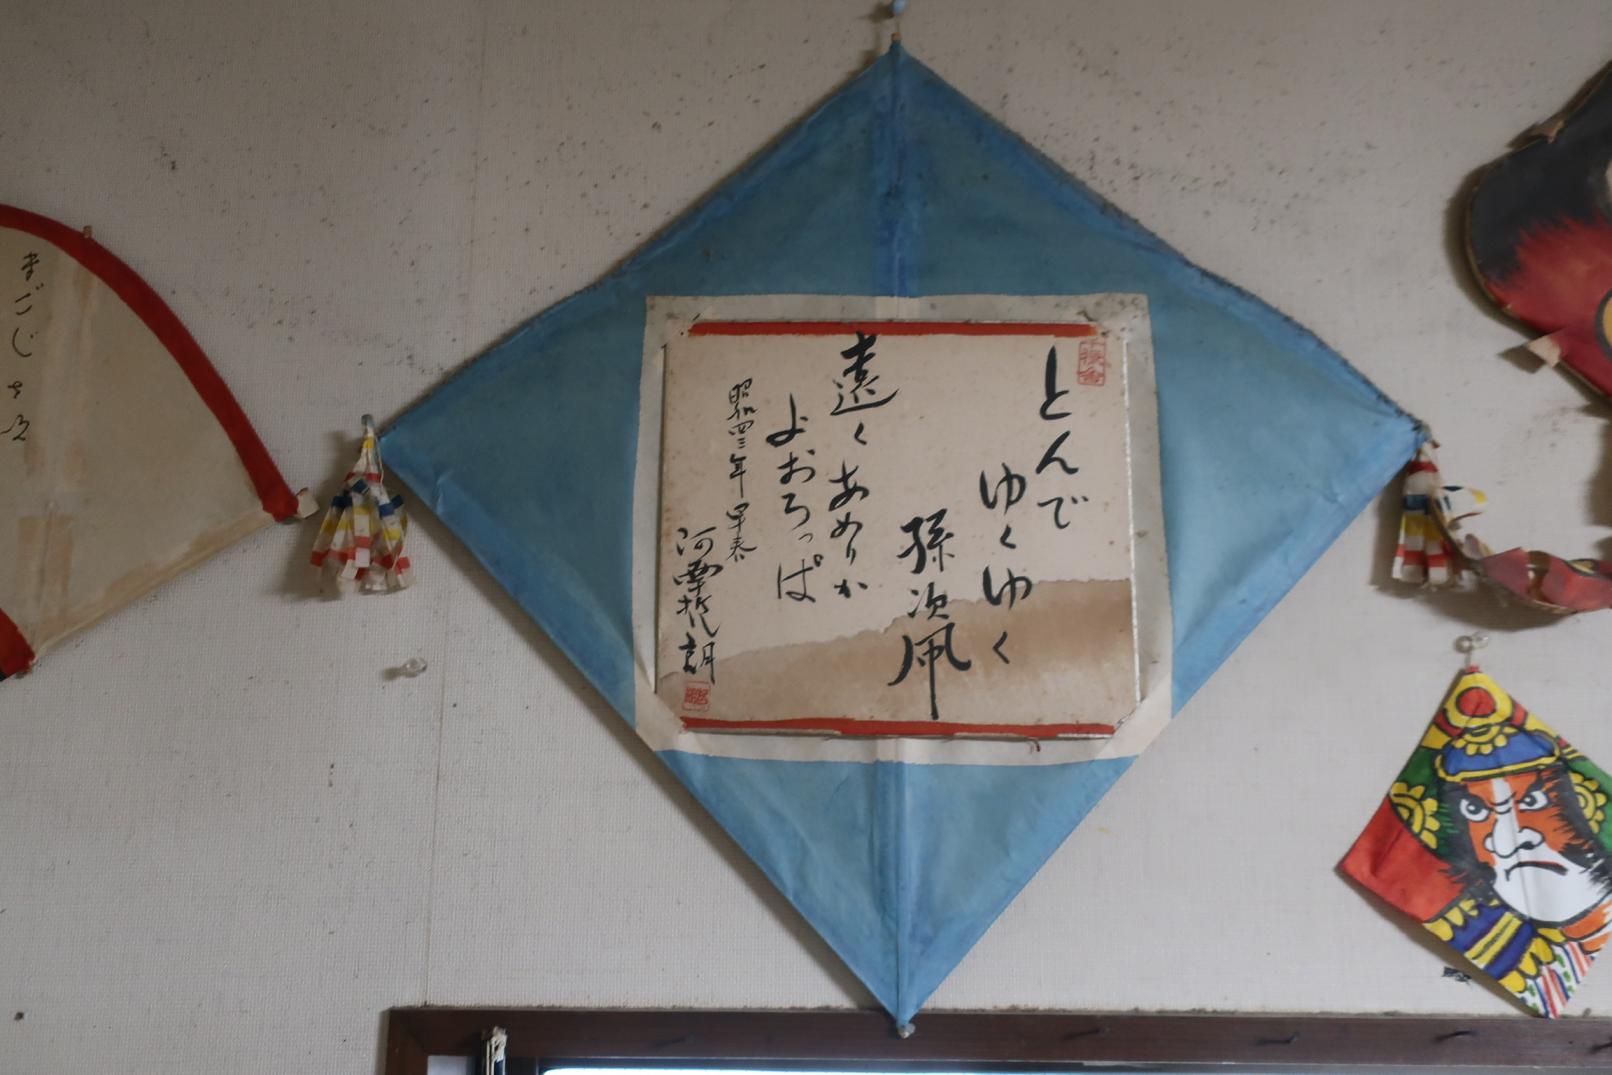 とんで
ゆくゆく
孫次凧
遠くあめりか
よおろっぱ
昭和四三年早春
まごじ